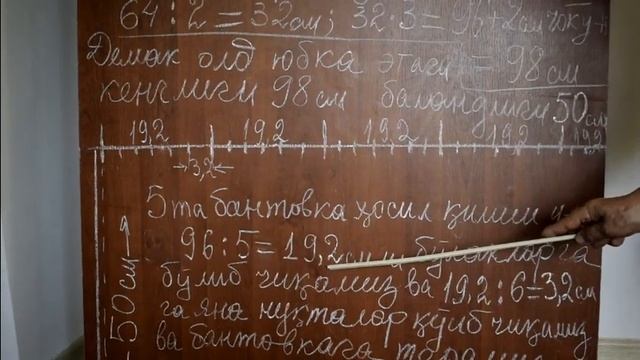 64 : 2 = 32см; 32·3 = 96+2см чоку
Демак олд юбка этаги = 98см
кенглиги 98см баландлиги 50см
19,2 19,2 19,2 19,2 19,2
3,2
5 та бантовка ҳосил қилиш
96:5=19,2см ли бўлакларга
бўлиб чиқамиз ва 19,2:6=3,2см
га яна нуқталар қўйиб чиқамиз
ва бантовкага
50см